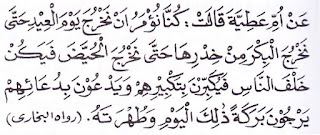 عَنْ أُمِّ عَطِيَّةَ قَالَتْ: كُنَّا نُؤْمَرُ أَنْ نَخْرُجَ يَوْمَ الْعِيْدِ حَتَّى
نُخْرِجَ الْبِكْرَ مِنْ خِدْرِهَا حَتَّى نُخْرِجَ الْحُيَّضَ فَيَكُنَّ
خَلْفَ النَّاسِ فَيُكَبِّرْنَ بِتَكْبِيْرِهِمْ وَيَدْعُوْنَ بِدُعَائِهِمْ
يَرْجُوْنَ بَرَكَةَ ذٰلِكَ الْيَوْمِ وَطُهْرَتَهُ. (رواه البخارى)